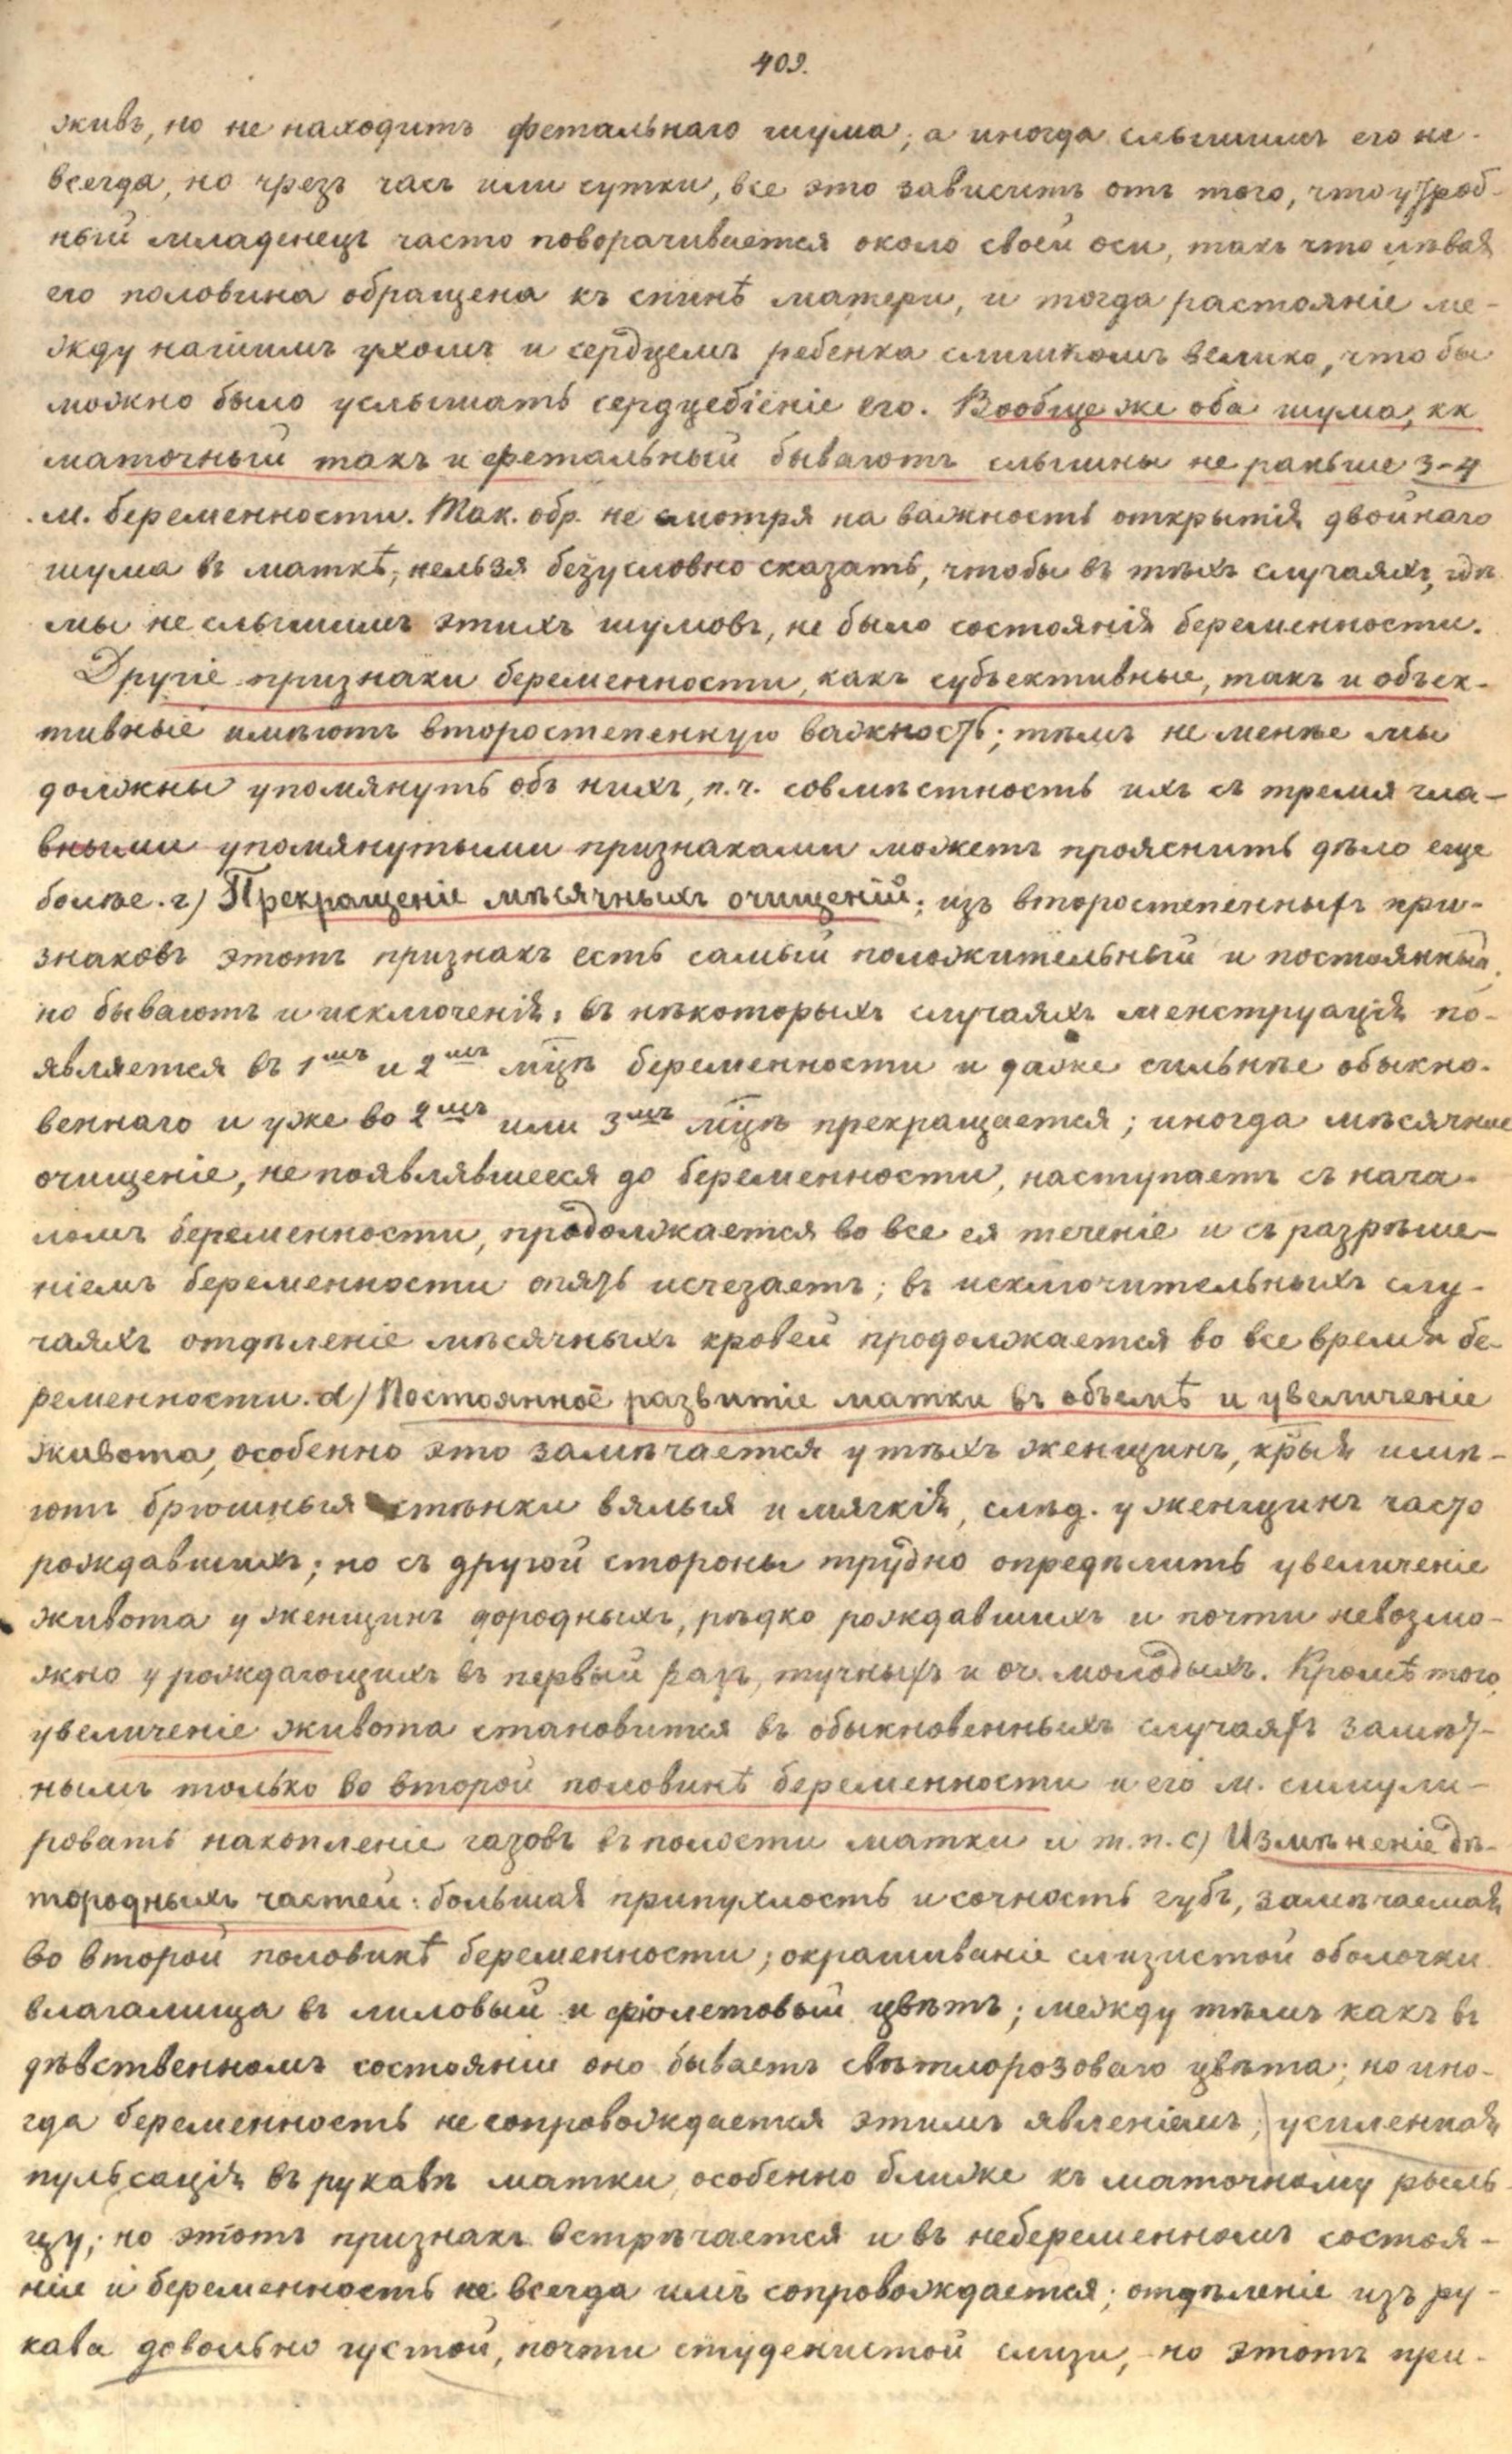 409.
живъ, но не находитъ фетальнаго шума; а иногда слышимъ его не-
всегда, но чрезъ часъ или сутки, все это зависитъ отъ того, что утроб-
ный младенецъ часто поворачивается около своей оси, такъ что лѣвая
его половина обращена къ спинѣ матери, и тогда растояніе ме-
жду нашимъ ухомъ и сердцемъ ребенка слишкомъ велико, что бы
можно было услышать сердцебіеніе его. Вообще же оба шума, кк
маточный такъ и фетальный бываютъ слышны не раньше 3-4
м. беременности. Так. обр. не смотря на важность открытія двойнаго
шума въ маткѣ, нельзя безусловно сказать, чтобы въ тѣхъ случаяхъ, гдѣ
мы не слышимъ этихъ шумовъ, не было состоянія беременности.
Другіе признаки беременности, какъ субъективные, такъ и объек-
тивные имѣютъ второстепенную важность; тѣмъ не менѣе мы
должны упомянуть объ нихъ, п.ч. совмѣстность ихъ съ тремя гла-
вными упомянутыми признаками можетъ прояснить дѣло еще
болѣе. г) Прекращеніе мѣсячныхъ очищеній; изъ второстепенныхъ при-
знаковъ этотъ признакъ есть самый положительный и постоянный,
но бываютъ и исключенія: въ нѣкоторыхъ случаяхъ менструація по-
является въ 1мъ и 2мъ мцѣ беременности и даже сильнѣе обыкно-
веннаго и уже во 2мъ или 3мъ мцѣ прекращается; иногда мѣсячное
очищеніе, не появлявшееся до беременности, наступаетъ съ нача-
ломъ беременности, продолжается во все ея теченіе и съ разрѣше-
ніемъ беременности опять исчезаетъ; въ исключительныхъ слу-
чаяхъ отдѣленіе мѣсячныхъ кровей продолжается во все время бе-
ременности. d) Постоянное развитіе матки въ объемѣ и увеличеніе
живота, особенно это замѣчается у тѣхъ женщинъ, крыя имѣ-
ютъ брюшныя стѣнки вялыя и мягкія, слѣд. у женщинъ часто
рождавшихъ; но съ другой стороны трудно опредѣлить увеличеніе
живота у женщинъ дородныхъ, рѣдко рождавшихъ и почти невозмо-
жно у рождающихъ въ первый разъ, тучныхъ и оч. молодыхъ. Кромѣ того,
увеличеніе живота становится въ обыкновенныхъ случаяхъ замѣт-
нымъ только во второй половинѣ беременности и его м. симули-
ровать накопленіе газовъ въ полости матки и т.п. с) Измѣненіе дѣ-
тородныхъ частей: большая припухлость и сочность губъ, замѣчаемая
во второй половинѣ беременности; окрашиваніе слизистой оболочки
влагалища въ лиловый и фіолетовый цвѣтъ; между тѣмъ какъ въ
дѣвственномъ состояніи оно бываетъ свѣтлорозоваго цвѣта; но ино-
гда беременность не сопровождается этимъ явленіемъ; усиленная
пульсація въ рукавѣ матки, особенно ближе къ маточному рыль-
цу; но этотъ признакъ встрѣчается и въ небеременномъ состоя-
ніи и беременность не всегда имъ сопровождается; отдѣленіе изъ ру-
кава довольно густой, почти студенистой слизи, - но этотъ при-